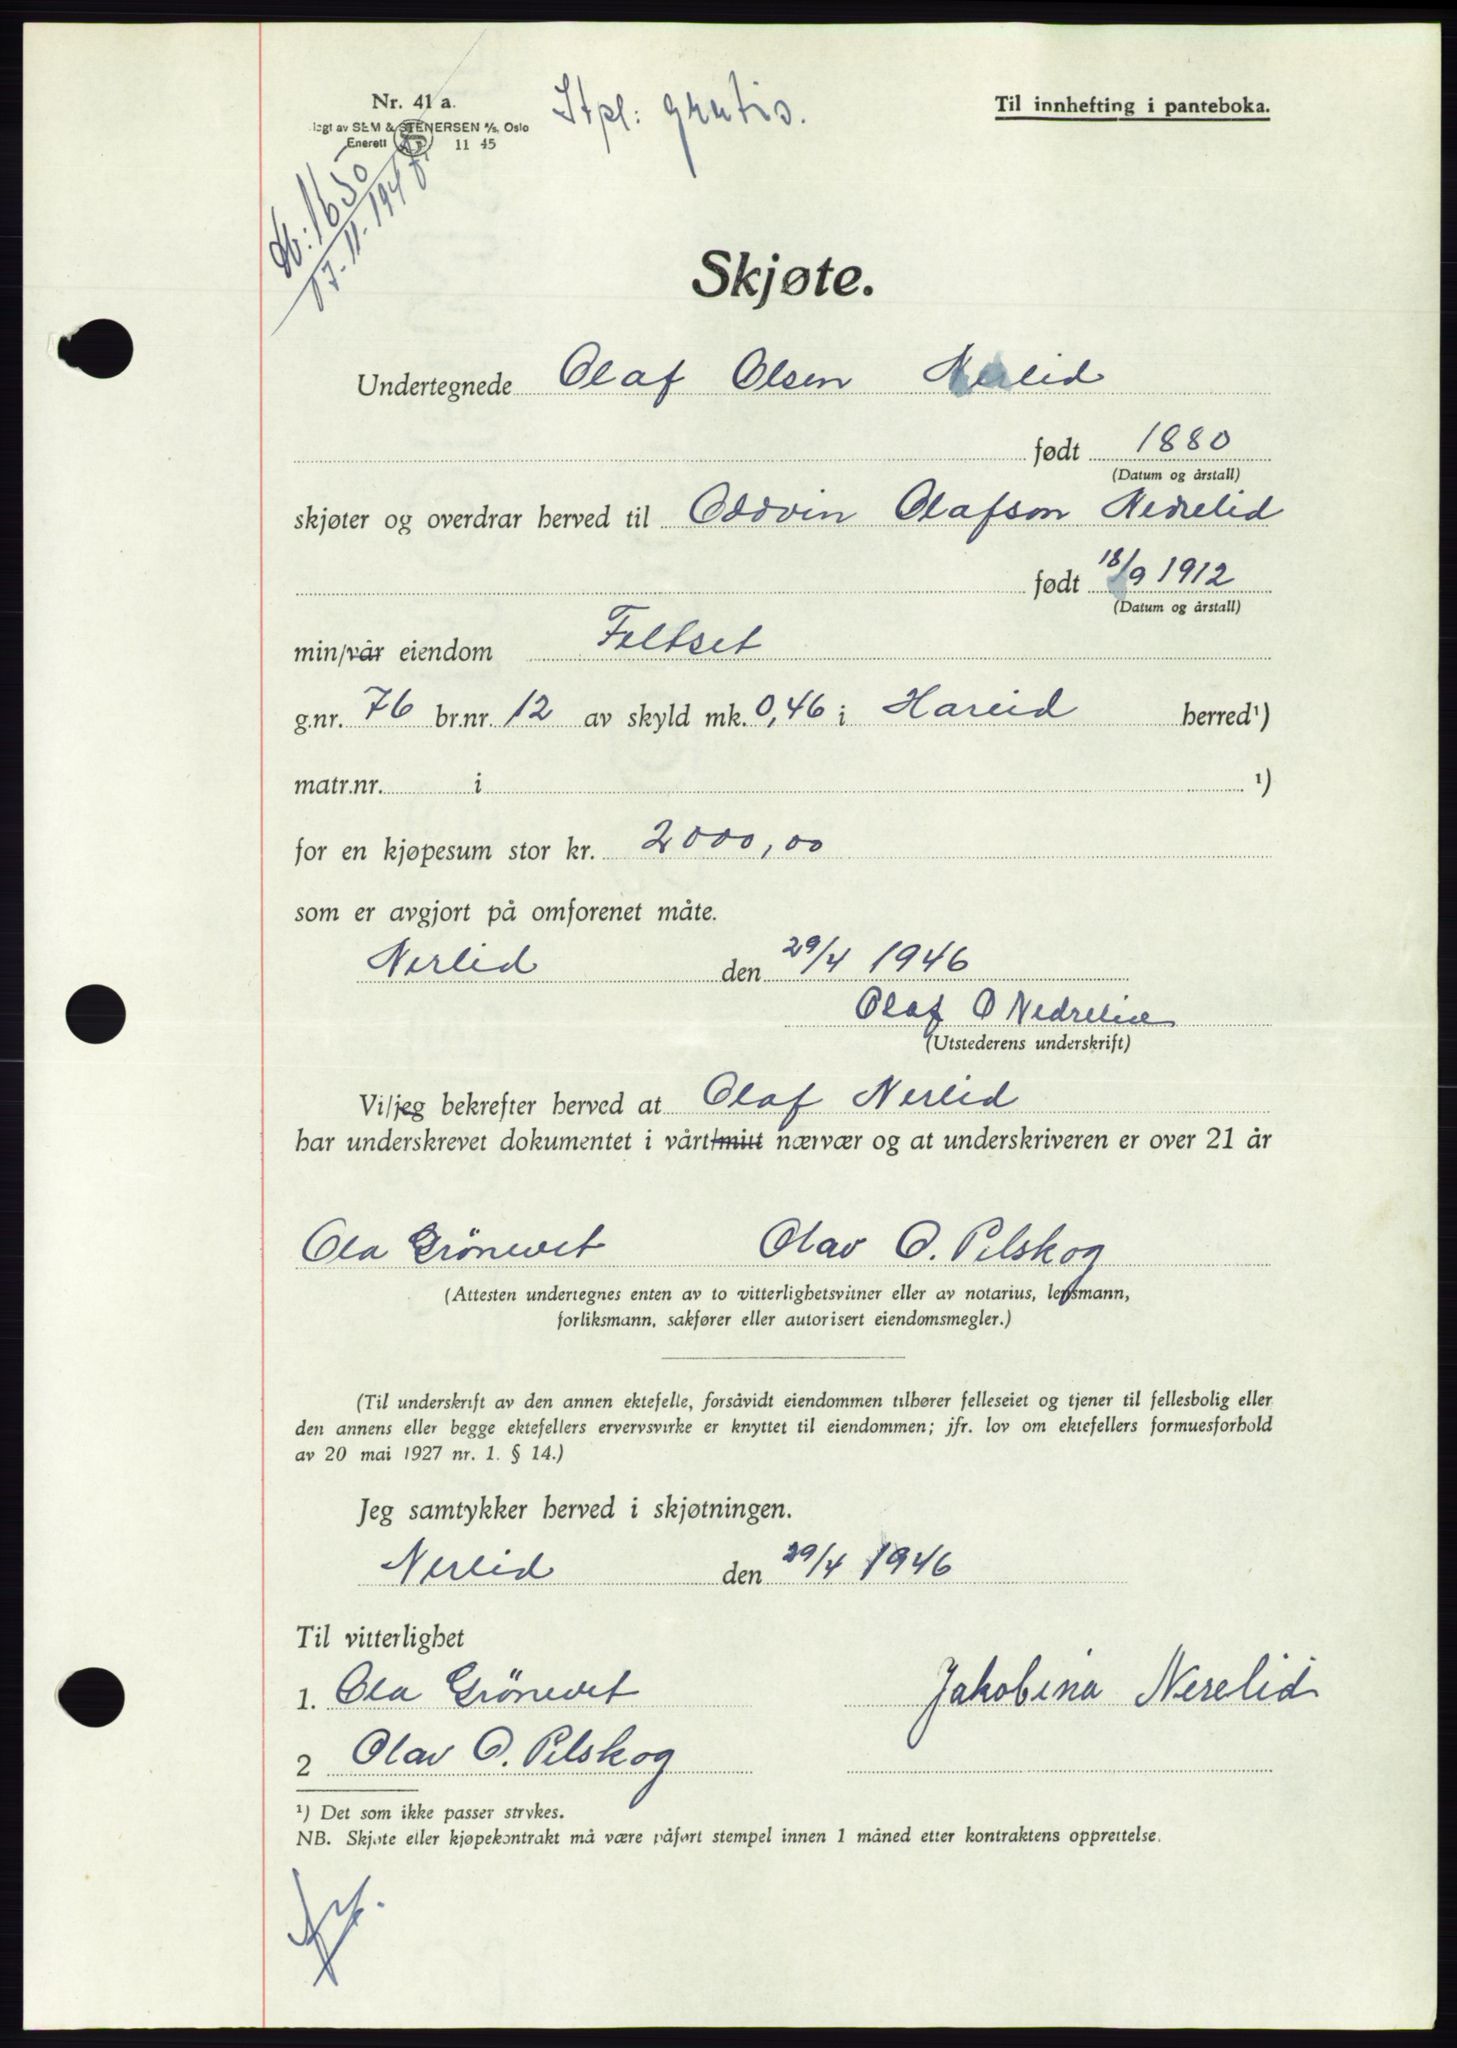 Nr. 41 a.
lagt av SEM & STENERSEN A/S, Oslo
Enerett 11 45
Stpl: gratis.
Til innhefting i panteboka.
Db: 1650
Skjøte.
Undertegnede Olaf Olsen Nerlid
født 1880
(Datum og årstall)
skjøter og overdrar herved til Oddvin Olafson Nedrelid
født 18/9 1912
(Datum og årstall)
min/vår eiendom Feltset
g.nr. 76 br.nr. 12 av skyld mk. 0,46 i Hareid herred¹)
matr.nr. i ¹)
for en kjøpesum stor kr. 2000,00
som er avgjort på omforenet måte.
Nerlid den 29/4 1946
Olaf O Nedrelid
(Utstederens underskrift)
Vi/jeg bekrefter herved at Olaf Nerlid
har underskrevet dokumentet i vårt/mitt nærvær og at underskriveren er over 21 år
Ola Grönevet Olav O. Pilskog
(Attesten undertegnes enten av to vitterlighetsvitner eller av notarius, lensmann,
forliksmann, sakfører eller autorisert eiendomsmegler.)
(Til underskrift av den annen ektefelle, forsåvidt eiendommen tilhører felleseiet og tjener til fellesbolig eller
den annens eller begge ektefellers ervervsvirke er knyttet til eiendommen; jfr. lov om ektefellers formuesforhold
av 20 mai 1927 nr. 1. § 14.)
Jeg samtykker herved i skjøtningen.
Nerlid den 29/4 1946
Til vitterlighet
1. Ola Grönevet Jakobina Nerelid
2 Olav O. Pilskog
¹) Det som ikke passer strykes.
NB. Skjøte eller kjøpekontrakt må være påført stempel innen 1 måned etter kontraktens opprettelse.